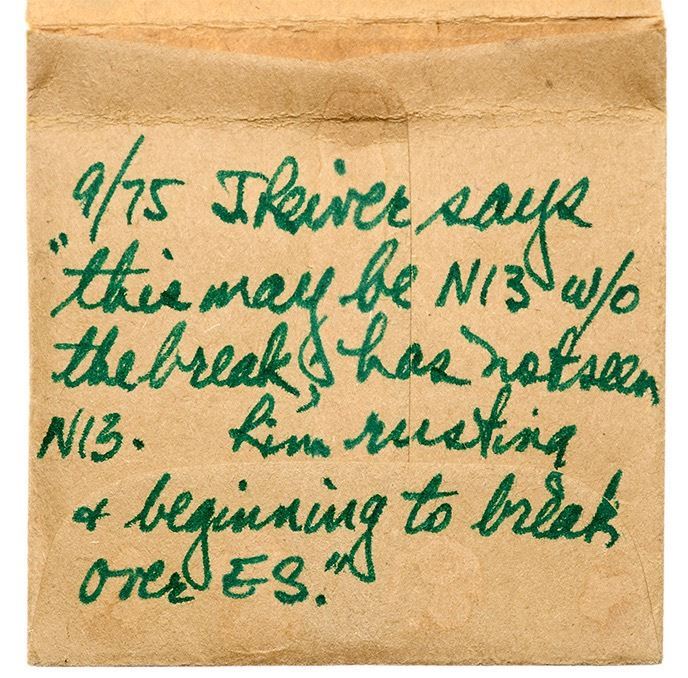 9/75 J Reiver says
"this may be N13 w/o
the break, has not seen
N13. Rim rusting
& beginning to break
over ES."